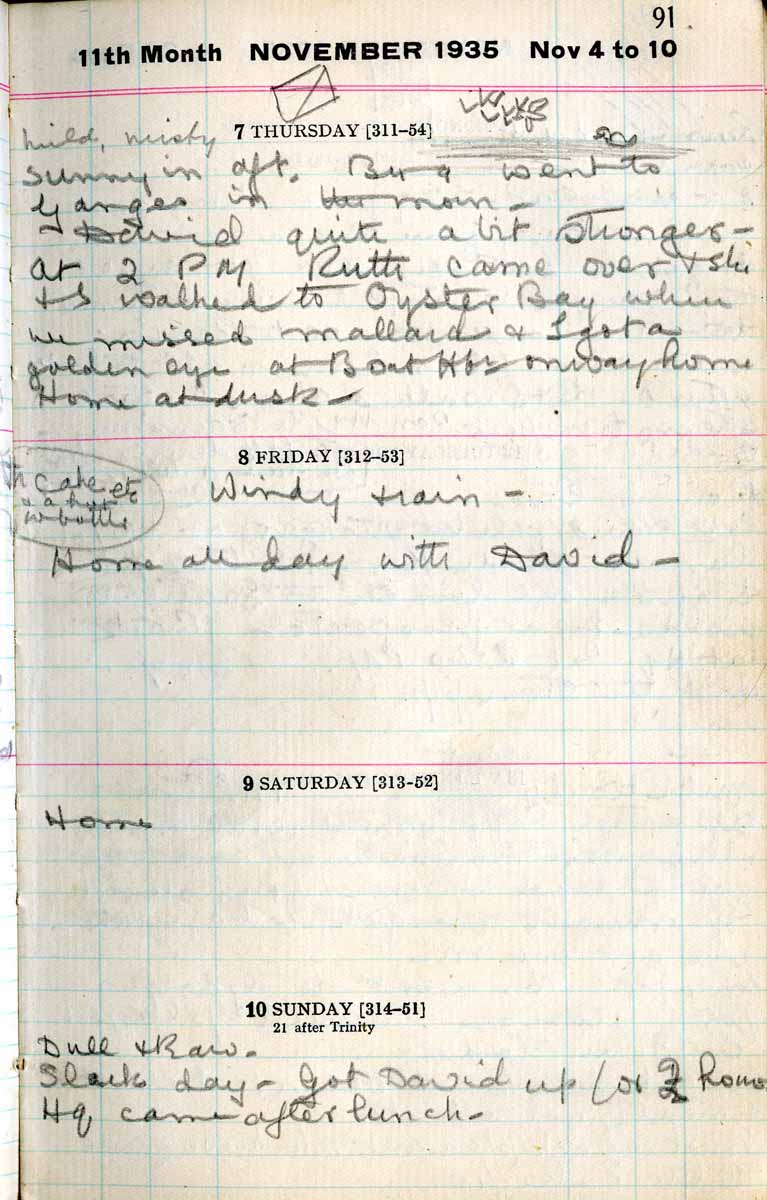 91
11th Month NOVEMBER 1935 Nov 4 to 10
7 THURSDAY [311–54]
mild, misty
sunny in aft. went to
Ganges in morn –
David quite a bit stronger –
At 2 PM Ruth came over & she
& I walked to Oyster Bay when
we missed mallard & I got a
golden eye at Boat Hbr on way home
Home at dusk –
8 FRIDAY [312–53]
Cake etc
w bottle
Windy & rain –
Home all day with David –
9 SATURDAY [313-52]
Home
10 SUNDAY [314–51]
21 after Trinity
Dull & Raw.
Slack day – Got David up for 2 hours
Hq came after lunch –